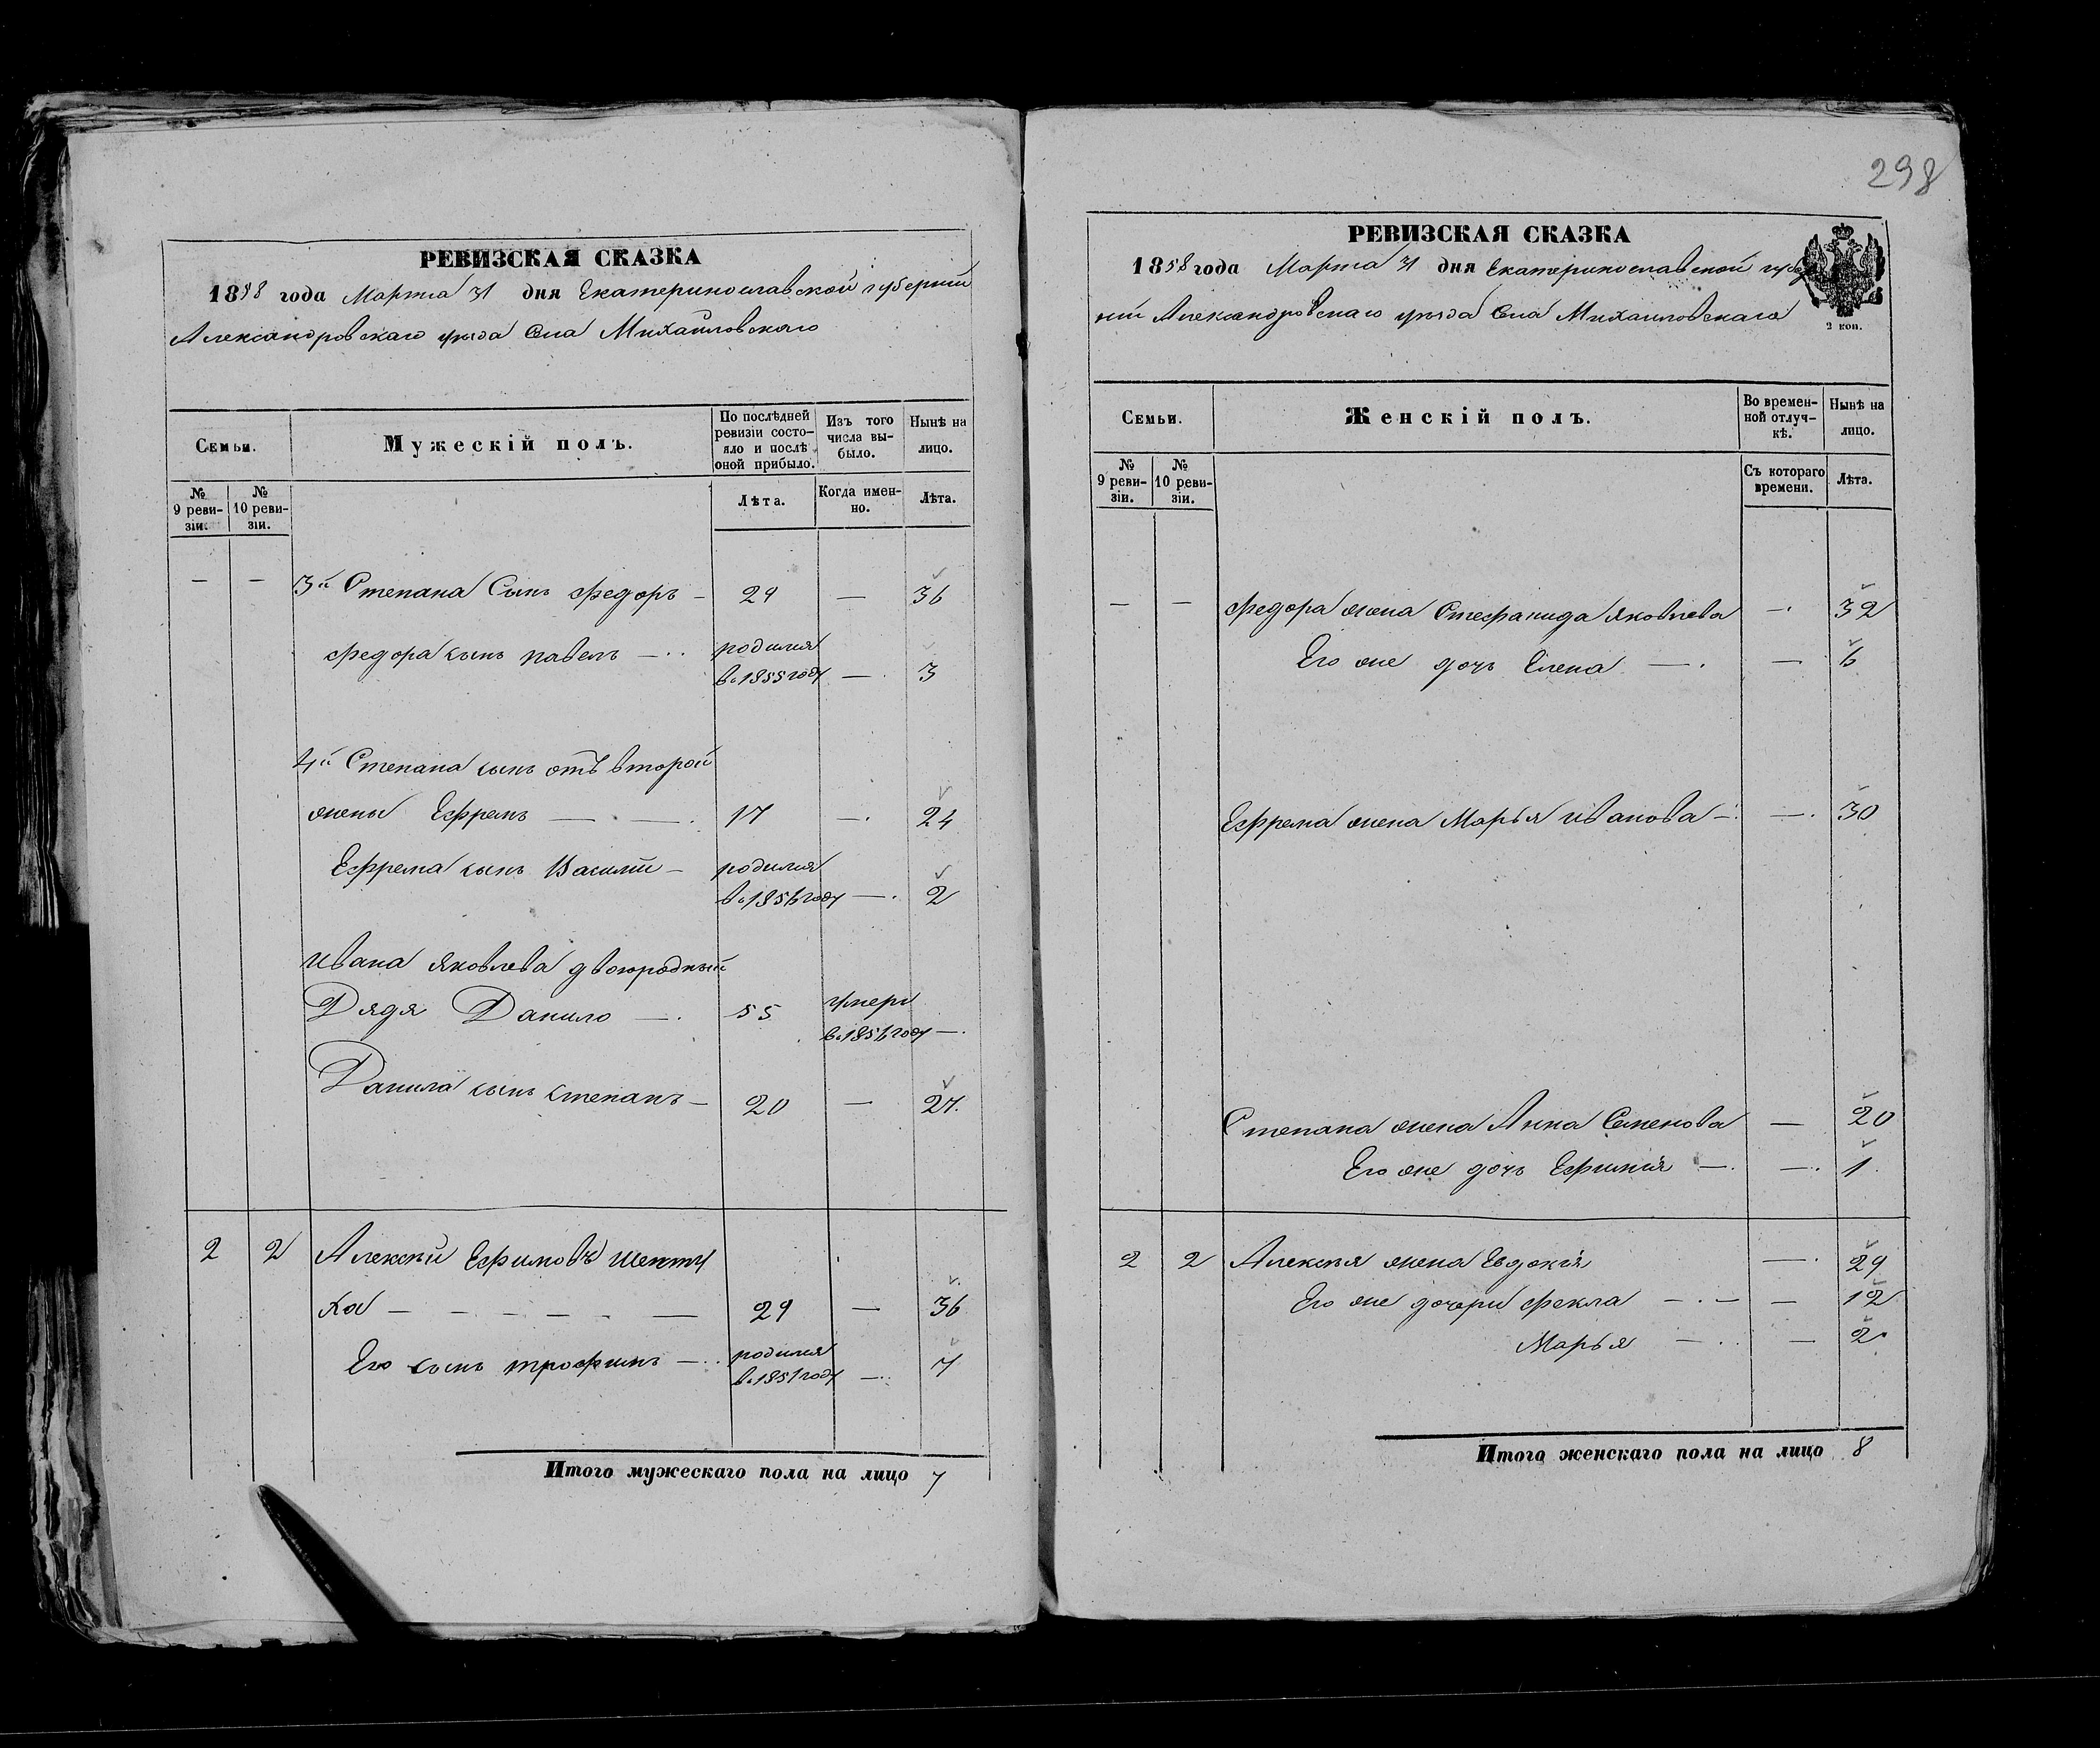 298
РЕВИЗСКАЯ СКАЗКА
1858 года Марта 31 дня Екатеринославской губерніи
Александровскаго уѣзда Села Михайловскаго
Семьи.
Мужескій полъ.
По послѣдней ревизіи состояло и послѣ оной прибыло.
Изъ того числа выбыло.
Нынѣ на лицо.
№ 9 ревизіи.
№ 10 ревизіи.
Лѣта.
Когда именно.
Лѣта.
— — 3й Степана Сынъ Федоръ — 29 — 36
Федора сынъ Павелъ — родился
в 1855 году — 3
4й Степана сынъ отъ второй
жены Ефремъ — 17 — 24
Ефрема сынъ Василій — родился
в 1856 году — 2
Ивана Яковлева двоюродный
Дядя Данило — 55 умеръ
в 1856 году —
Данила сынъ Степанъ — 20 — 27
2 2 Алексѣй Ефимовъ Шепту
ха — 29 — 36
Его сынъ Трофимъ — родился
в 1851 году — 7
Итого мужескаго пола на лицо 7
РЕВИЗСКАЯ СКАЗКА
1858 года Марта 31 дня Екатеринославской губер
ніи Александровскаго уѣзда Села Михайловскаго
2 коп.
Семьи.
Женскій полъ.
Во временной отлучкѣ.
Нынѣ на лицо.
№ 9 ревизіи.
№ 10 ревизіи.
Съ котораго времени.
Лѣта.
— — Федора жена Стефанида Яковлева — 32
Его же дочь Елена — — 6
Ефрема жена Марья Иванова — — 30
Степана жена Анна Семенова — 20
Его же дочь Ефимія — — 1
2 2 Алексѣя жена Евдокія — 29
Его же дочери Фекла — — 12
Марья — — 2
Итого женскаго пола на лицо 8